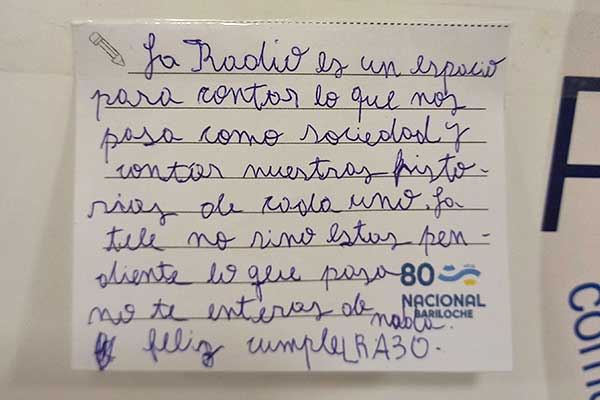 La Radio es un espacio
para contar lo que nos
pasa como sociedad y
contar nuestras histo-
rias de cada uno. La
tele no sino estas pen-
diente lo que pasa
no te enteras de nada.
feliz cumple LRA30.
80
NACIONAL
BARILOCHE